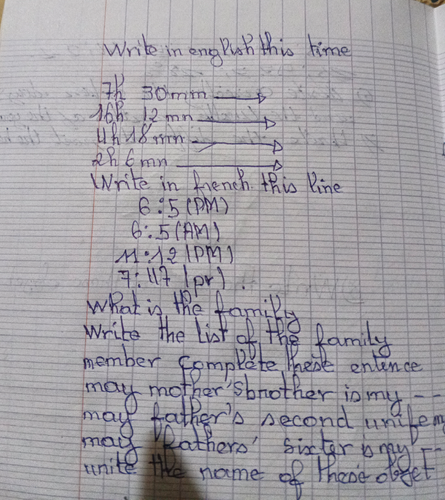 Write in english this time
7h 30mn
16h 12mn
11h 18mn
2h 6mn
Write in french this line
6:5 (PM)
6:5 (AM)
11:12 (PM)
7:47
What is the family
Write the list of the family
member complete these entence
may mother's brother is my --
may father's second
may fathers' sixter is my --
unite the name of these objet